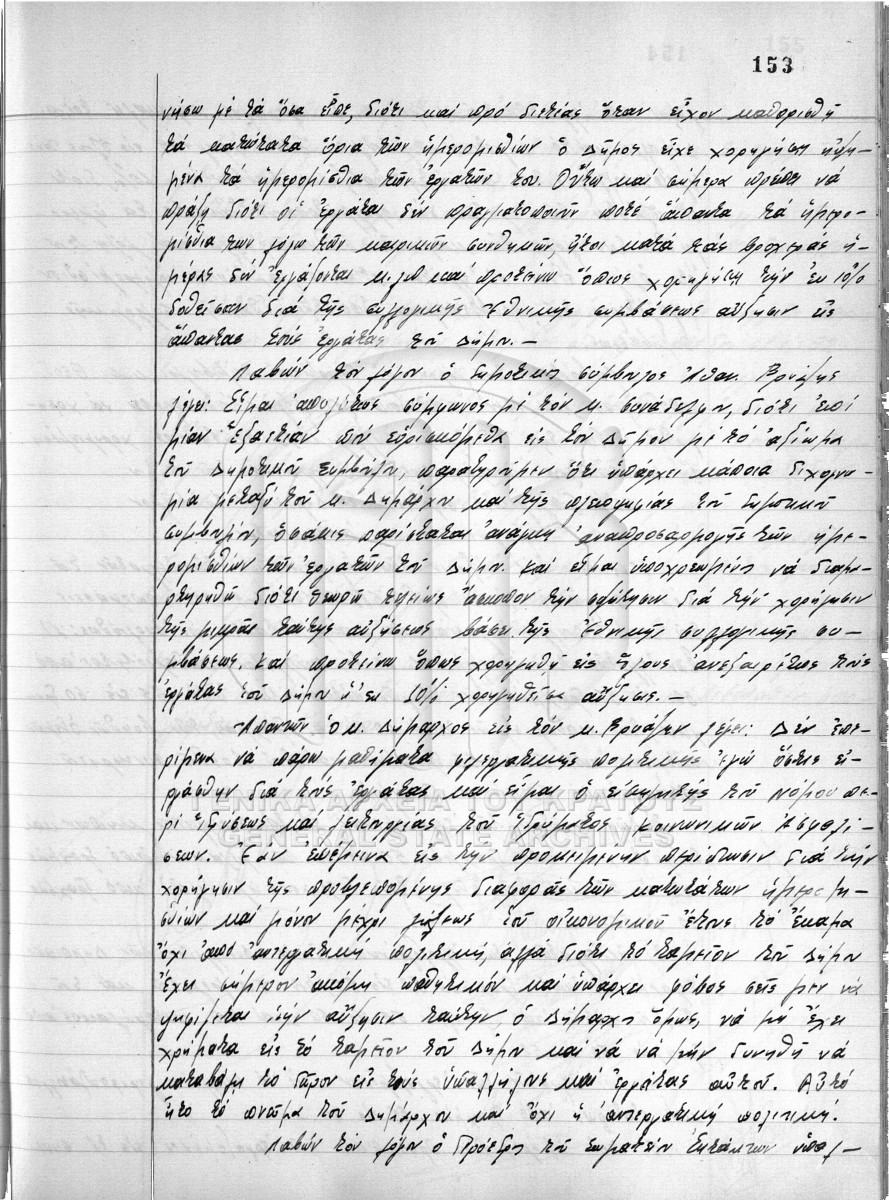 153
νήσω μέ τά ὅσα εἶπε, διότι καί πρό διετίας ὅταν εἶχον καθορισθῆ
τά κατώτατα ὅρια τῶν ἡμερομισθίων ὁ Δῆμος εἶχε χορηγήσει ηὐξη-
μένα τά ἡμερομίσθια τῶν ἐργατῶν του. Οὕτω καί σήμερα πρέπει νά
πράξη διότι οἱ ἐργάται δέν πραγματοποιοῦν ποτέ ἅπαντα τά ἡμερο-
μίσθια των, λόγω τῶν καιρικῶν συνθηκῶν, ἤτοι κατά τάς βροχεράς ἡ-
μέρας δέν ἐργάζονται κ.λπ καί προτείνω ὅπως χορηγήση τήν ἐκ 10%
δοθεῖσαν διά τῆς συλλογικῆς Ἐθνικῆς συμβάσεως αὔξησιν εἰς
ἅπαντας τούς ἐργάτας τοῦ Δήμου.-
Λαβών τόν λόγον ὁ δημοτικός σύμβουλος Ἀθαν. Βρυάζης
λέγει: Εἶμαι ἀπολύτως σύμφωνος μέ τόν κ. συνάδελφον, διότι ἐπί
μίαν ἑξαετίαν πού εὑρισκόμεθα εἰς τόν Δῆμον μέ τό ἀξίωμα
τοῦ Δημοτικοῦ Συμβούλου, παρατηροῦμεν ὅτι ὑπάρχει κάποια διχογνω-
μία μεταξύ τοῦ κ. Δημάρχου καί τῆς πλειοψηφίας τοῦ δημοτικοῦ
συμβουλίου, ὁσάκις παρίσταται ἀνάγκη ἀναπροσαρμογῆς τῶν ἡμε-
ρομισθίων τῶν ἐργατῶν τοῦ Δήμου. Καί εἶμαι ὑποχρεωμένος νά διαμα-
ρτυρηθῶ διότι θεωρῶ τελείως ἄσκοπον τήν συζήτησιν διά τήν χορήγησιν
τῆς μικρᾶς ταύτης αὐξήσεως βάσει τῆς Ἐθνικῆς συλλογικῆς συ-
μβάσεως. Καί προτείνω ὅπως χορηγηθῆ εἰς ὅλους ἀνεξαιρέτως τούς
ἐργάτας τοῦ Δήμου ἡ ἐκ 10% χορηγηθεῖσα αὔξησις.-
Ἀπαντῶν ὁ κ. Δήμαρχος εἰς τόν κ. Βρυάζην λέγει: Δέν ἐπε-
ρίμενα νά πάρω μαθήματα φιλεργατικῆς πολιτικῆς ἐγώ ὅστις εἰ-
ργάσθην διά τούς ἐργάτας καί εἶμαι ὁ εἰσηγητής τοῦ Νόμου πε-
ρί ἱδρύσεως καί λειτουργίας τοῦ Ἱδρύματος Κοινωνικῶν Ἀσφαλί-
σεων. Ἐάν ἐπέμεινα εἰς τήν προκειμένην περίπτωσιν διά τήν
χορήγησιν τῆς προβλεπομένης διαφορᾶς τῶν κατωτάτων ἡμερομι-
σθίων καί μόνον μέχρι λήξεως τοῦ οἰκονομικοῦ ἔτους τό ἔκαμα
ὄχι ἀπό ἀντεργατική πολιτική, ἀλλά διότι τό ταμεῖον τοῦ Δήμου
ἔχει σήμερον ἀκόμη παθητικόν καί ὑπάρχει φόβος σεῖς μέν νά
ψηφίζεται τήν αὔξησιν ταύτην, ὁ Δήμαρχος ὅμως, νά μή ἔχει
χρήματα εἰς τό ταμεῖον τοῦ Δήμου καί νά νά μήν δυνηθῆ νά
καταβάλη τό δῶρον εἰς τούς ὑπαλλήλους καί ἐργάτας αὐτοῦ. Αὐτό
ἦτο τό πνεῦμα τοῦ Δημάρχου καί ὄχι ἡ ἀντεργατική πολιτική.
Λαβών τόν λόγον ὁ Πρόεδρος τοῦ Σωματείου Ἐκτάκτων ὑπαλ-
ΓΕΝΙΚΑ ΑΡΧΕΙΑ ΤΟΥ ΚΡΑΤΟΥΣ
GENERAL STATE ARCHIVES